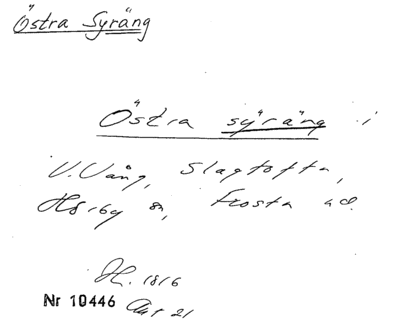 Östra Syräng
Östra syräng i
V. Vång, Slagtofta,
Hörby sn, Frosta hd.
H. 1816
Nr 10446 Akt 21